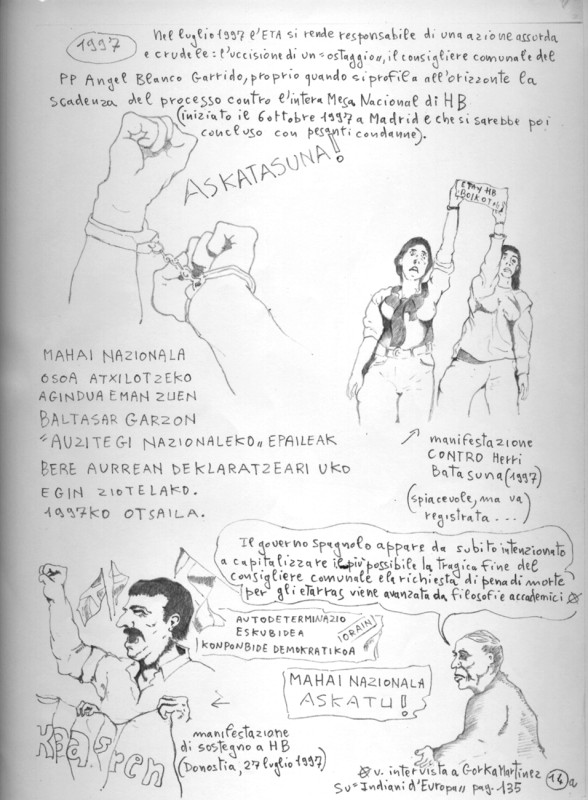 1997
Nel luglio 1997 l'ETA si rende responsabile di una azione assurda
e crudele: l'uccisione di un "ostaggio", il consigliere comunale del
PP Angel Blanco Garrido, proprio quando si profila all'orizzonte la
scadenza del processo contro l'intera Mesa Nacional di HB
(iniziato il 6 ottobre 1997 a Madrid e che si sarebbe poi
concluso con pesanti condanne).
ASKATASUNA!
ETA Y HB
BOIKOT
MAHAI NAZIONALA
OSOA ATXILOTZEKO
AGINDUA EMAN ZUEN
BALTASAR GARZON
"AUZITEGI NAZIONALEKO" EPAILEAK
BERE AURREAN DEKLARATZEARI UKO
EGIN ZIOTELAKO.
1997KO OTSAILA.
manifestazione
CONTRO Herri
Batasuna (1997)
(spiacevole, ma va
registrata...)
Il governo spagnolo appare da subito intenzionato
a capitalizzare il più possibile la tragica fine del
consigliere comunale e la richiesta di pena di morte
per gli etarras viene avanzata da filosofi e accademici
AUTODETERMINAZIO
ESKUBIDEA
KONPONBIDE DEMOKRATIKOA
IORAIN
MAHAI NAZIONALA
ASKATU!
manifestazione
di sostegno a HB
(Donostia, 27 luglio 1997)
v. intervista a Gorka Martinez
su "Indiani d'Europa" pag. 135
14a